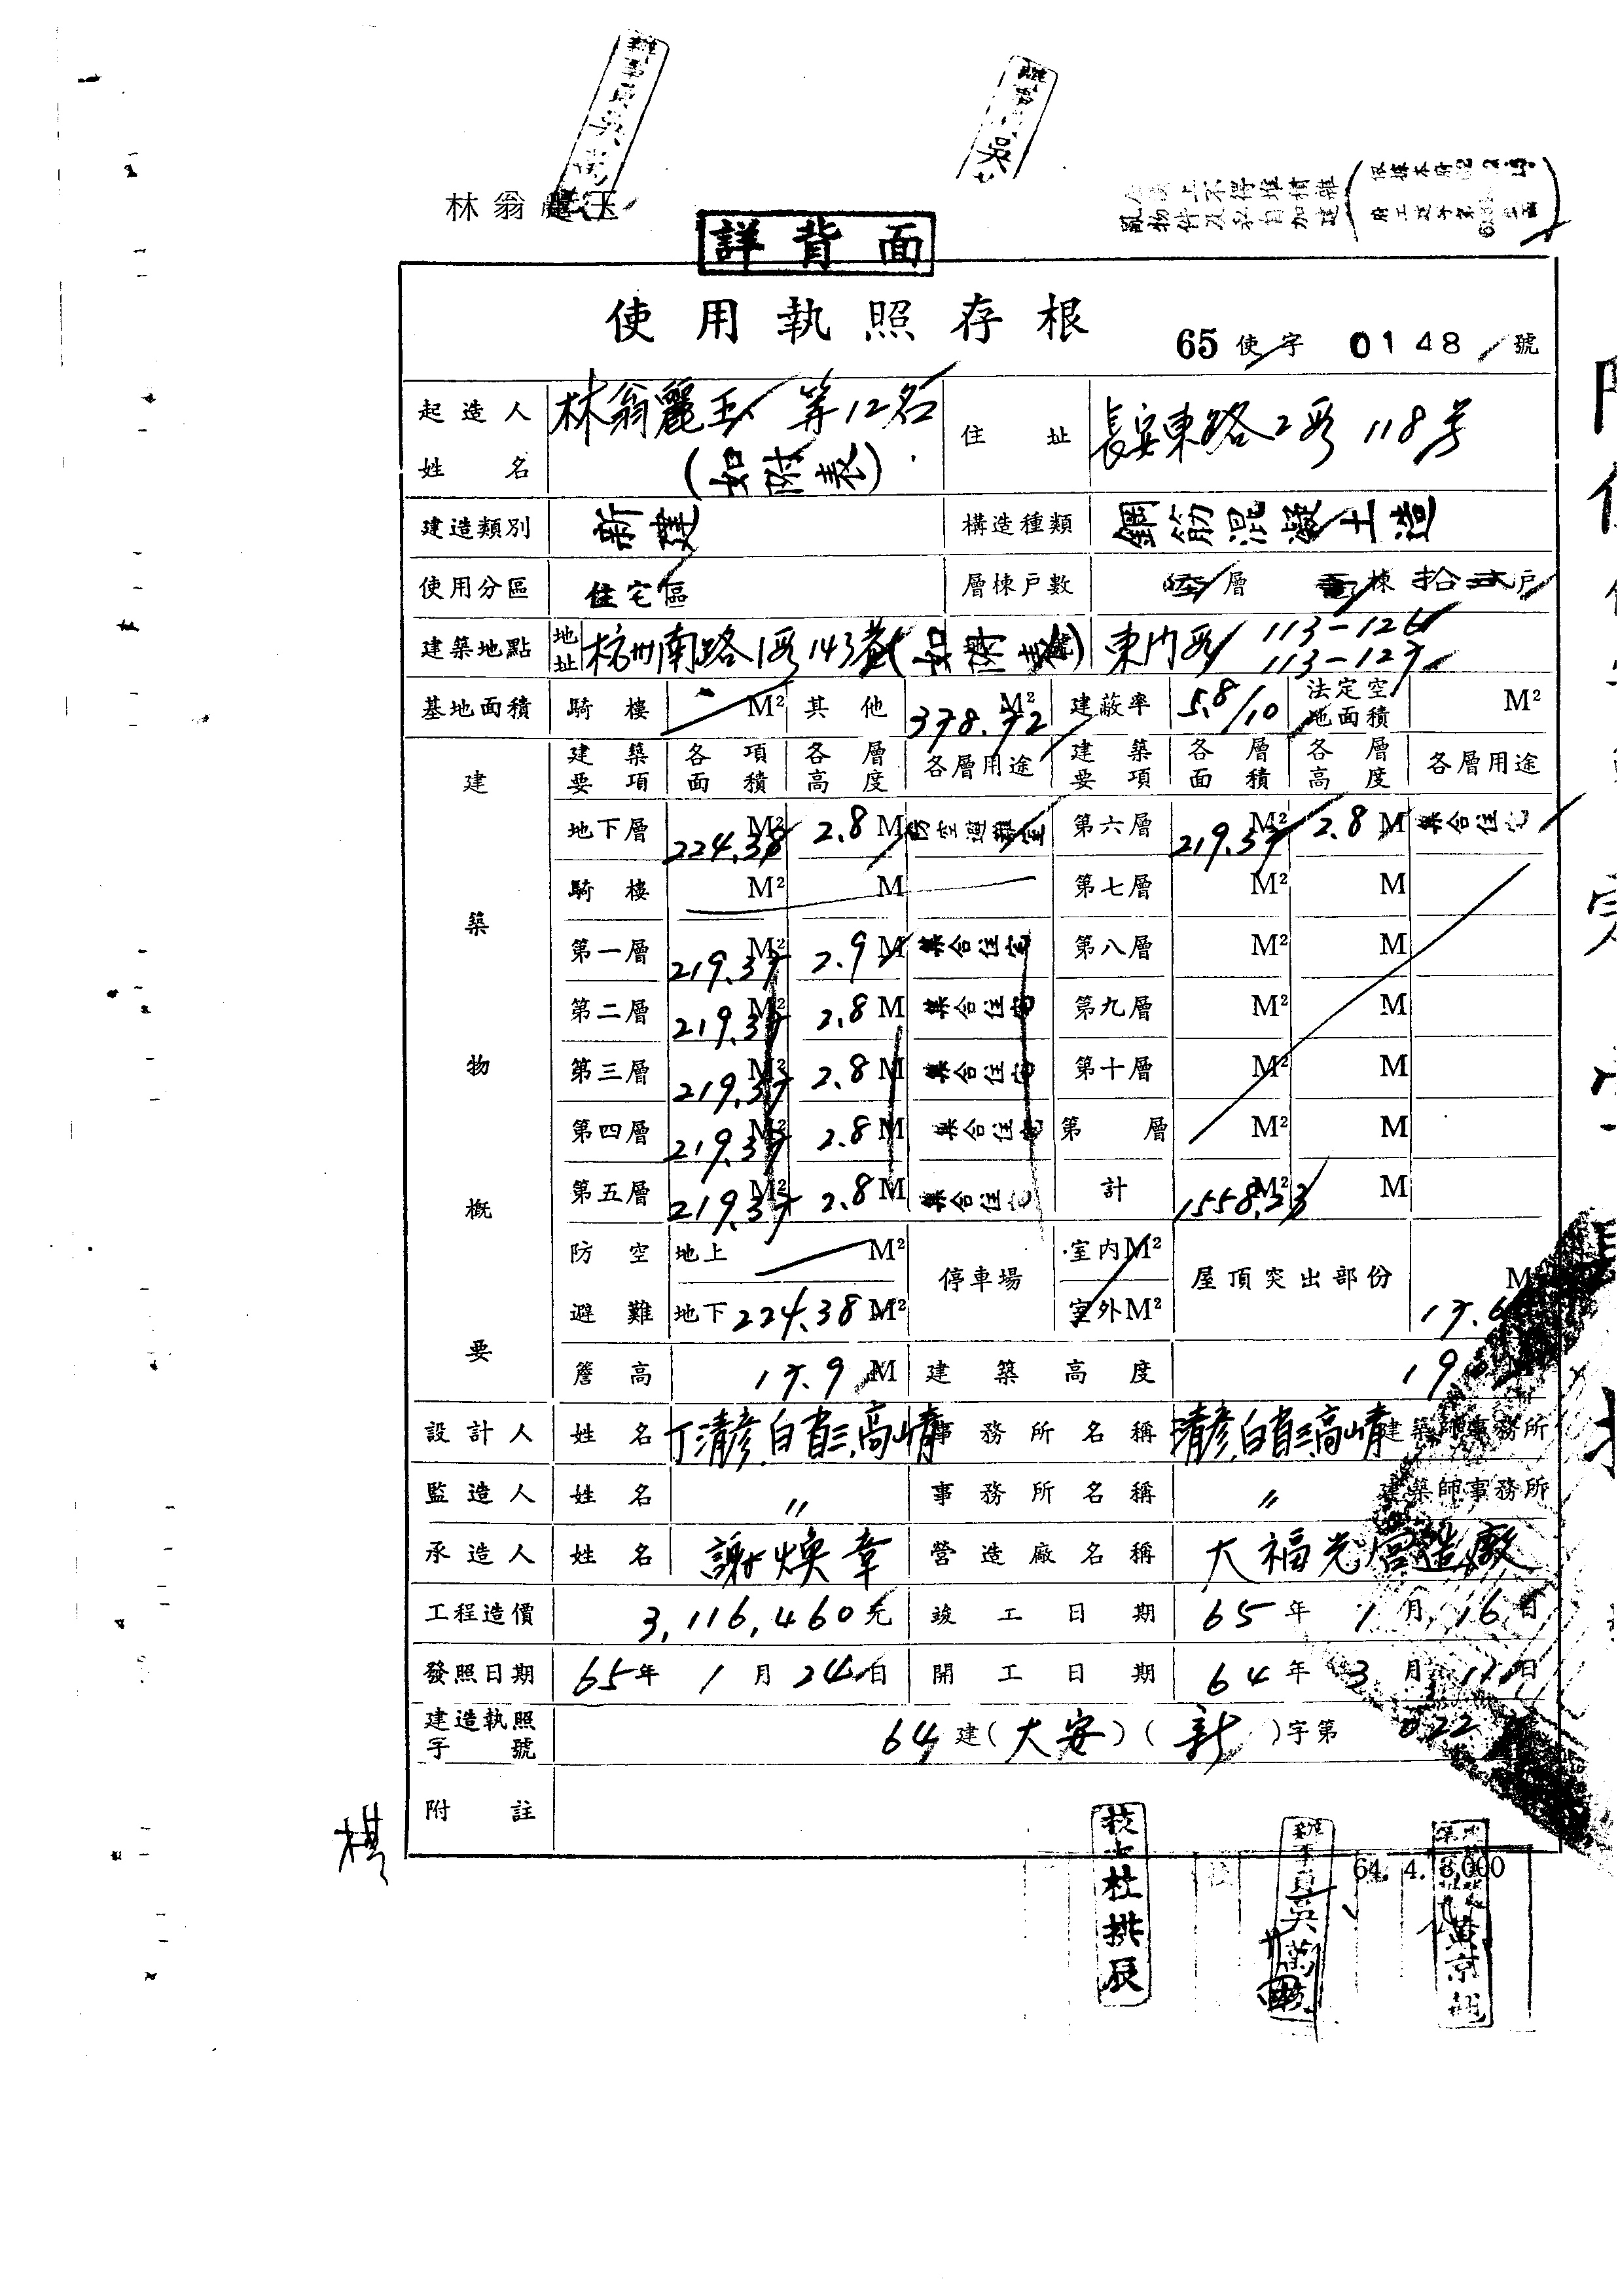 林翁麗玉
詳背面
使用執照存根
65 使字 0148 號
起造人姓名 林翁麗玉 等12名 (如附表) 住址 長安東路2段118号
建造類別 新建 構造種類 鋼筋混凝土造
使用分區 住宅區 層棟戶數 陸層 壹棟 拾貳戶
建築地點 地址 杭州南路1段143巷 東門段 113-126 113-127
基地面積 騎樓 M² 其他 378.72 M² 建蔽率 5.8/10 法定空地面積 M²
建築物概要
建築要項 各項面積 各層高度 各層用途 建築要項 各層面積 各層高度 各層用途
地下層 224.38 M² 2.8 M 防空避難室 第六層 219.37 M² 2.8 M 集合住宅
騎樓 M² M 第七層 M² M
第一層 219.37 M² 2.9 M 集合住宅 第八層 M² M
第二層 219.37 M² 2.8 M 集合住宅 第九層 M² M
第三層 219.37 M² 2.8 M 集合住宅 第十層 M² M
第四層 219.37 M² 2.8 M 集合住宅 第 層 M² M
第五層 219.37 M² 2.8 M 集合住宅 計 1558.23 M² M
防空避難 地上 M² 停車場 室內 M² 屋頂突出部份
地下 224.38 M² 室外 M²
簷高 17.9 M 建築高度
設計人 姓名 丁清彥.白省三.高靖 事務所名稱 清彥.白省三高靖 建築師事務所
監造人 姓名 〃 事務所名稱 〃 建築師事務所
承造人 姓名 謝煥章 營造廠名稱 大福光營造廠
工程造價 3,116,460元 竣工日期 65年1月16日
發照日期 65年1月24日 開工日期 64年3月17日
建造執照字號 64建(大安)(新)字第
附註
64. 4.
技士杜拱辰